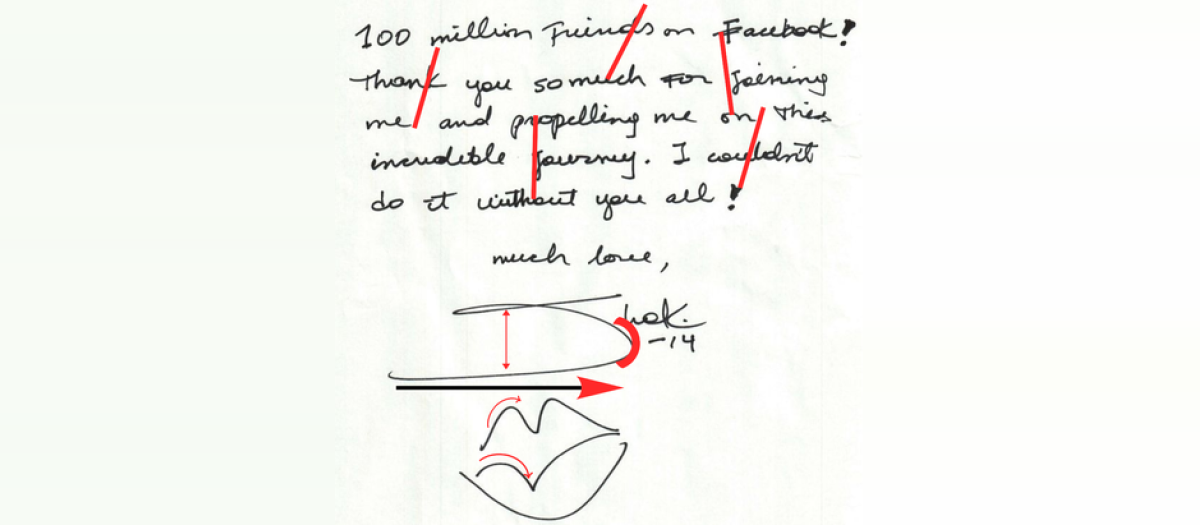 100 million Friends on Facebook!
Thank you so much for joining
me and propelling me on this
incredible journey. I couldn't
do it without you all!
much love,
Shak.
-14